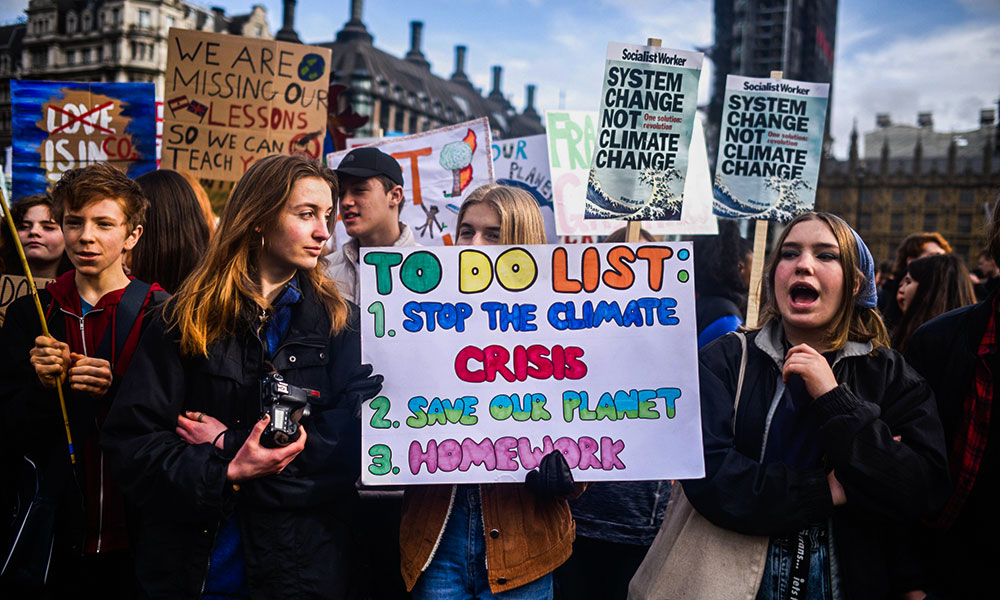 WE ARE
MISSING OUR
LESSONS
SO WE CAN
TEACH
LOVE
IS IN
OUR
PLANE
Socialist Worker
SYSTEM
CHANGE
NOT
CLIMATE
CHANGE
One solution:
revolution
Socialist Worker
SYSTEM
CHANGE
NOT
CLIMATE
CHANGE
One solution:
revolution
TO DO LIST:
1. STOP THE CLIMATE
CRISIS
2. SAVE OUR PLANET
3. HOMEWORK